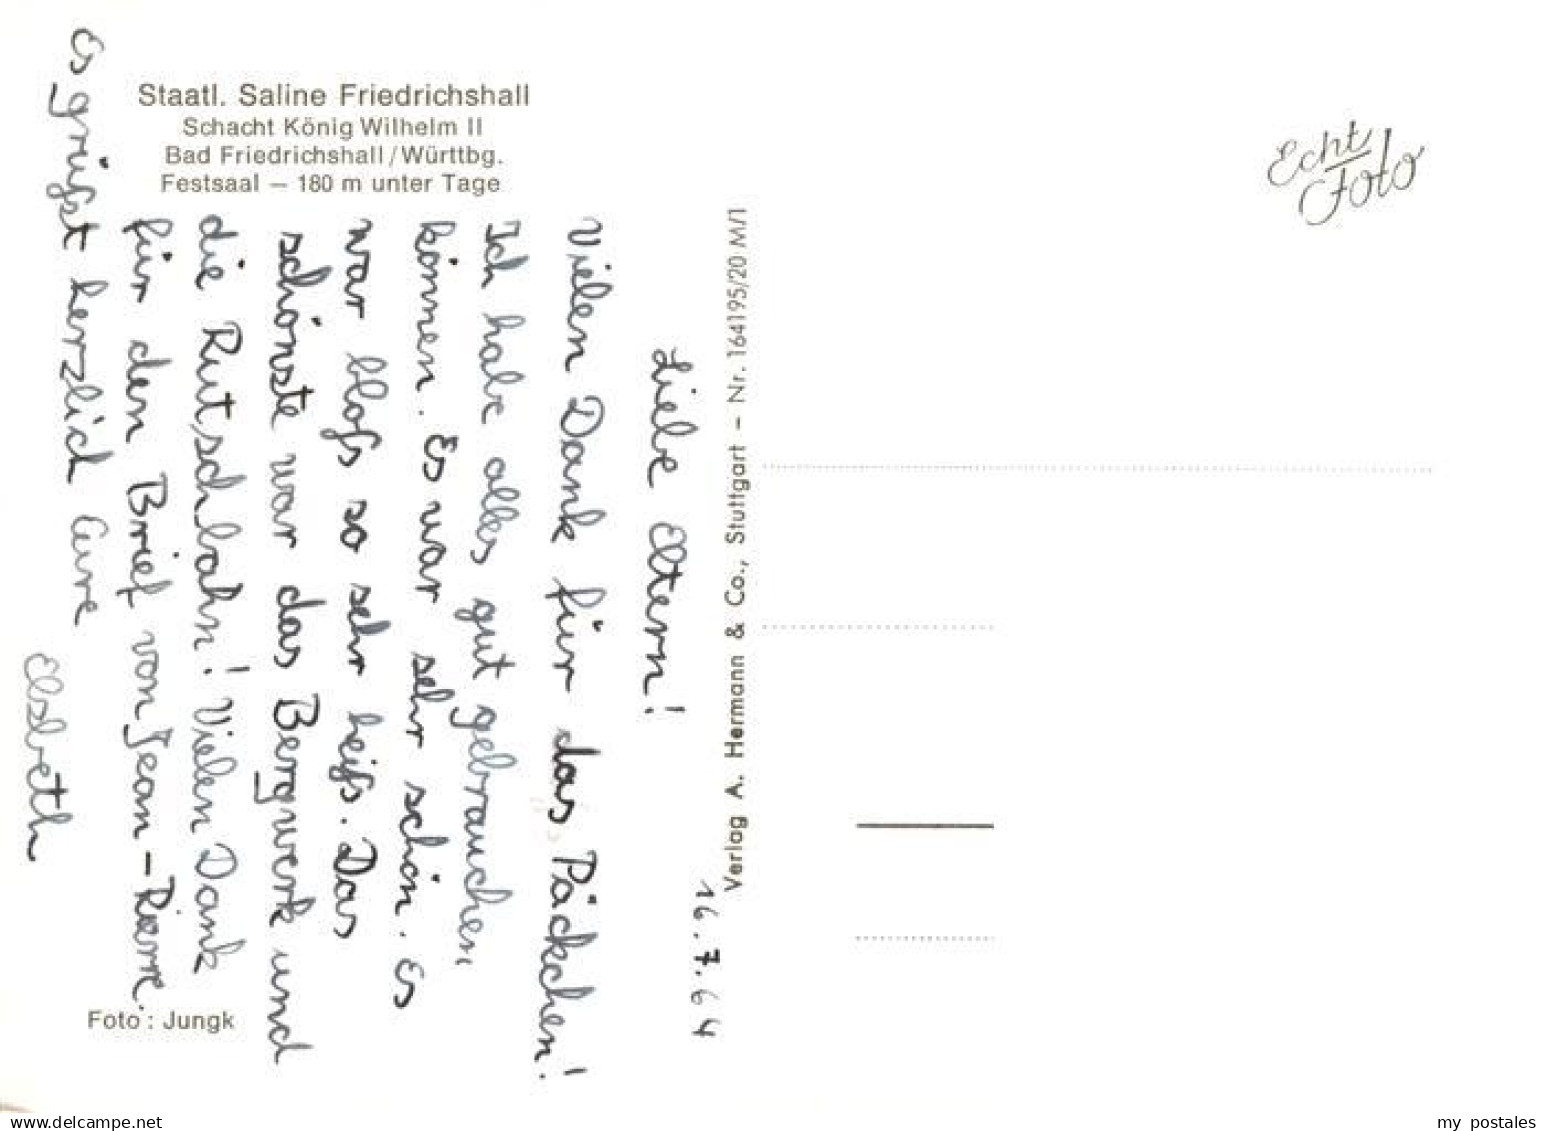 Staatl. Saline Friedrichshall
Schacht König Wilhelm II
Bad Friedrichshall / Württbg.
Festsaal – 180 m unter Tage
Echt
Foto
16.7.64
Liebe Eltern!
Vielen Dank für das Päckchen!
Ich habe alles gut gebrauchen
können. Es war sehr schön. Es
war blofs so sehr heifs. Das
schönste war das Bergwerk und
die Rutschbahn! Vielen Dank
für den Brief von Jean-Pierre.
Es grüfst herzlich Eure
Elsbeth
Verlag A. Hermann & Co., Stuttgart – Nr. 164195/20 M/1
Foto: Jungk
www.delcampe.net
my postales